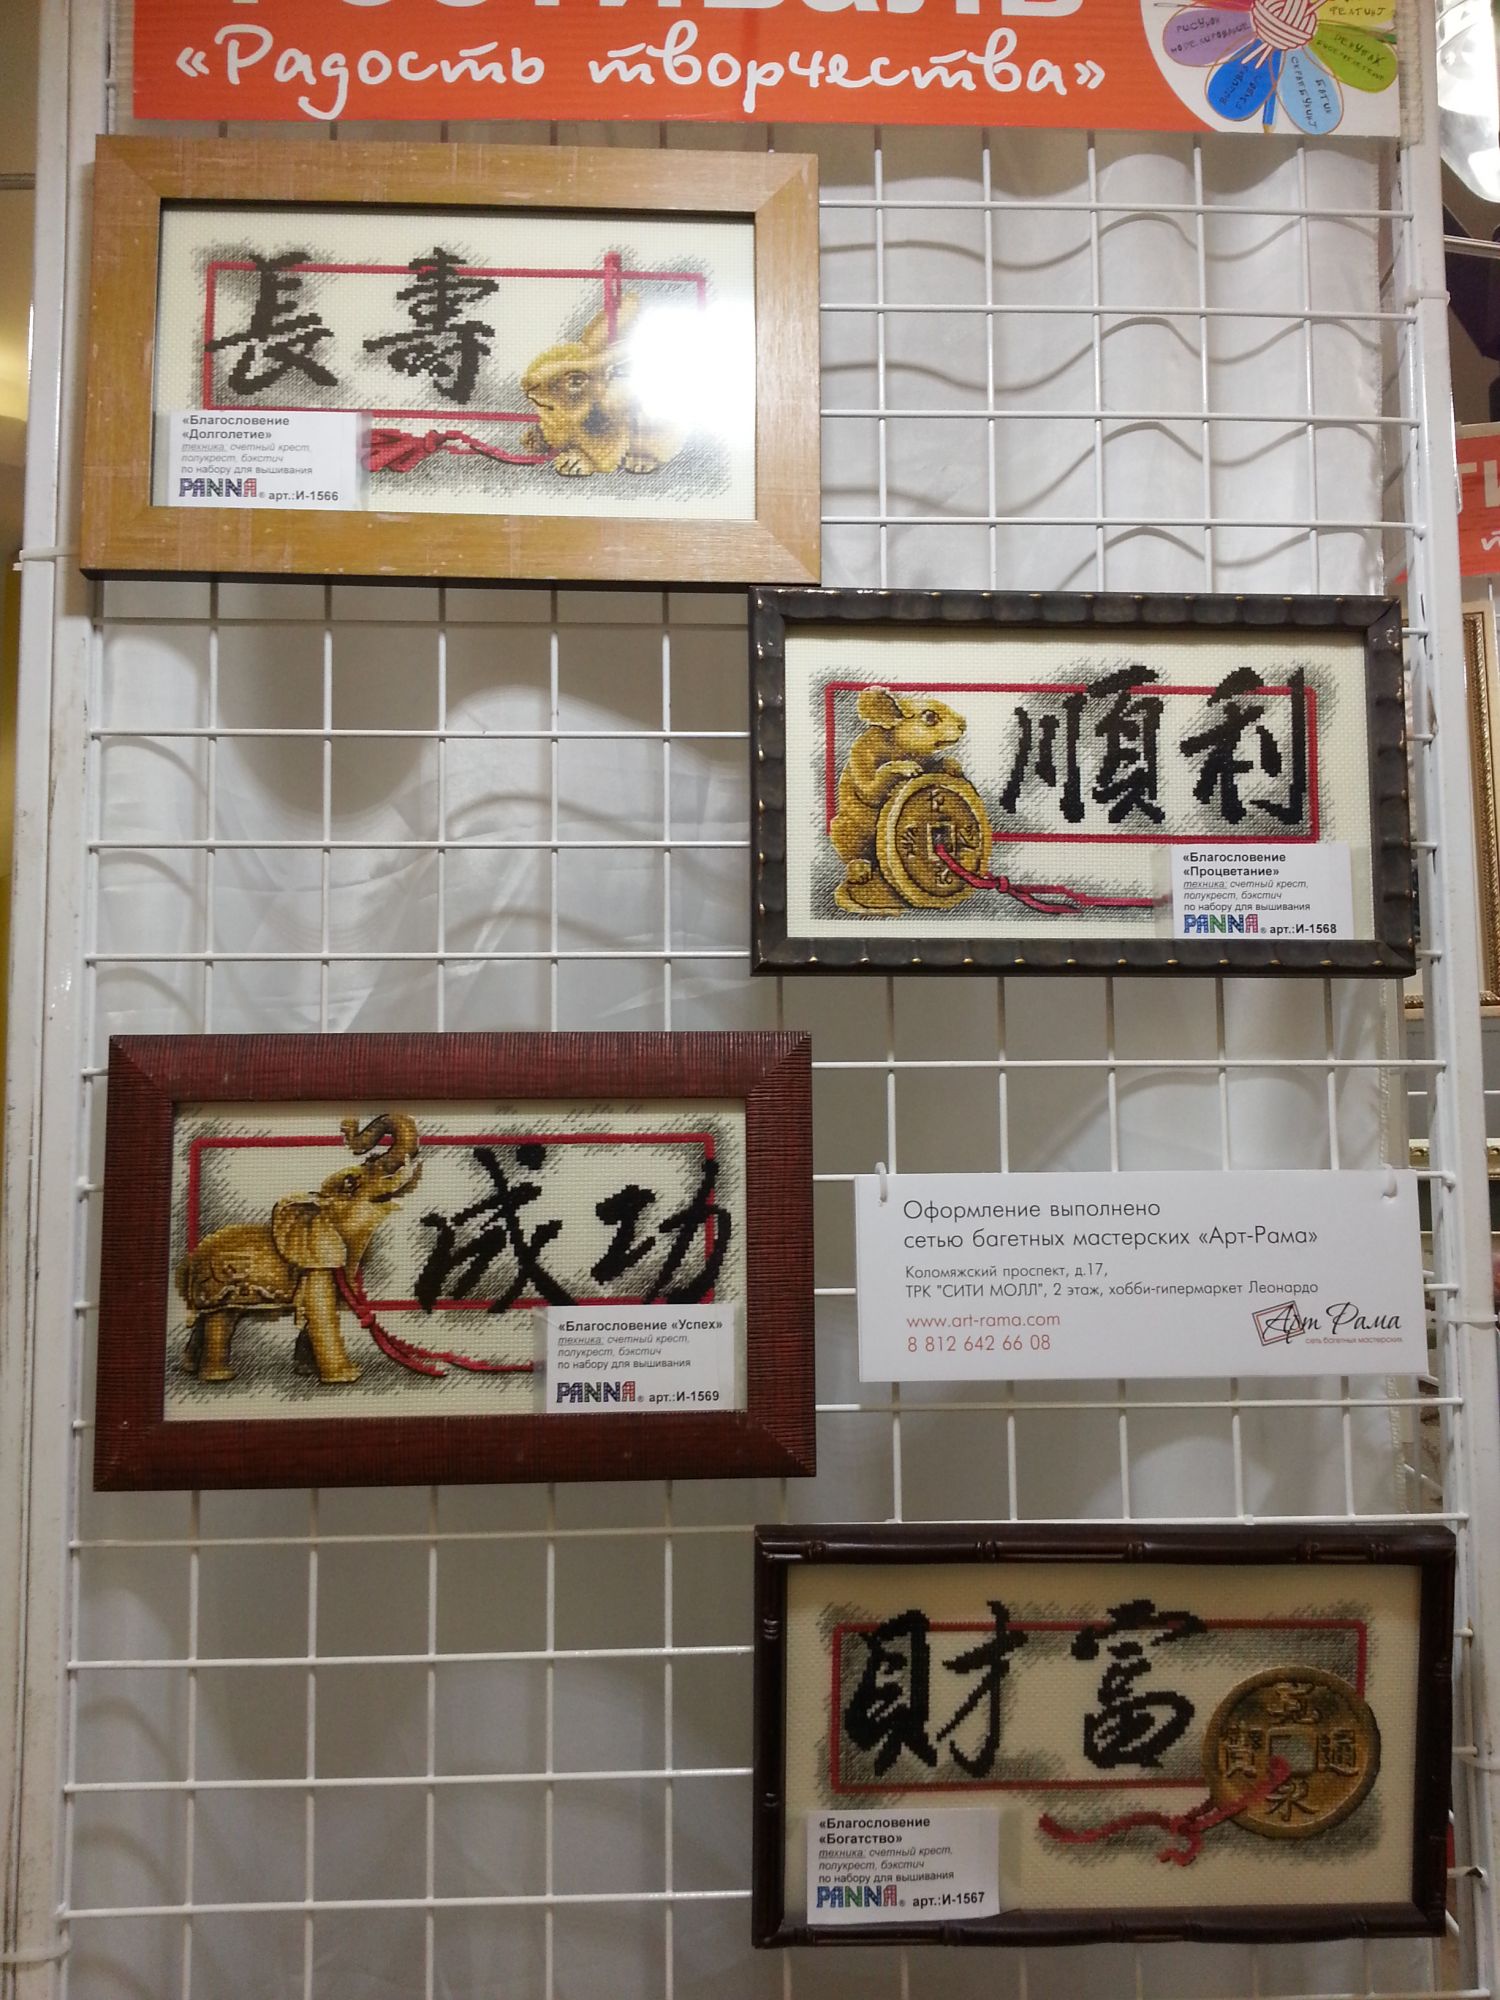 «Радость творчества»
長壽
«Благословение
«Долголетие»
техника: счетный крест,
полукрест, бэкстич
по набору для вышивания
PANNA® арт.:И-1566
順利
«Благословение
«Процветание»
техника: счетный крест,
полукрест, бэкстич
по набору для вышивания
PANNA® арт.:И-1568
成功
«Благословение «Успех»
техника: счетный крест,
полукрест, бэкстич
по набору для вышивания
PANNA® арт.:И-1569
Оформление выполнено
сетью багетных мастерских «Арт-Рама»
Коломяжский проспект, д.17,
ТРК "СИТИ МОЛЛ", 2 этаж, хобби-гипермаркет Леонардо
www.art-rama.com
8 812 642 66 08
Арт Рама
сеть багетных мастерских
財富
«Благословение
«Богатство»
техника: счетный крест,
полукрест, бэкстич
по набору для вышивания
PANNA® арт.:И-1567